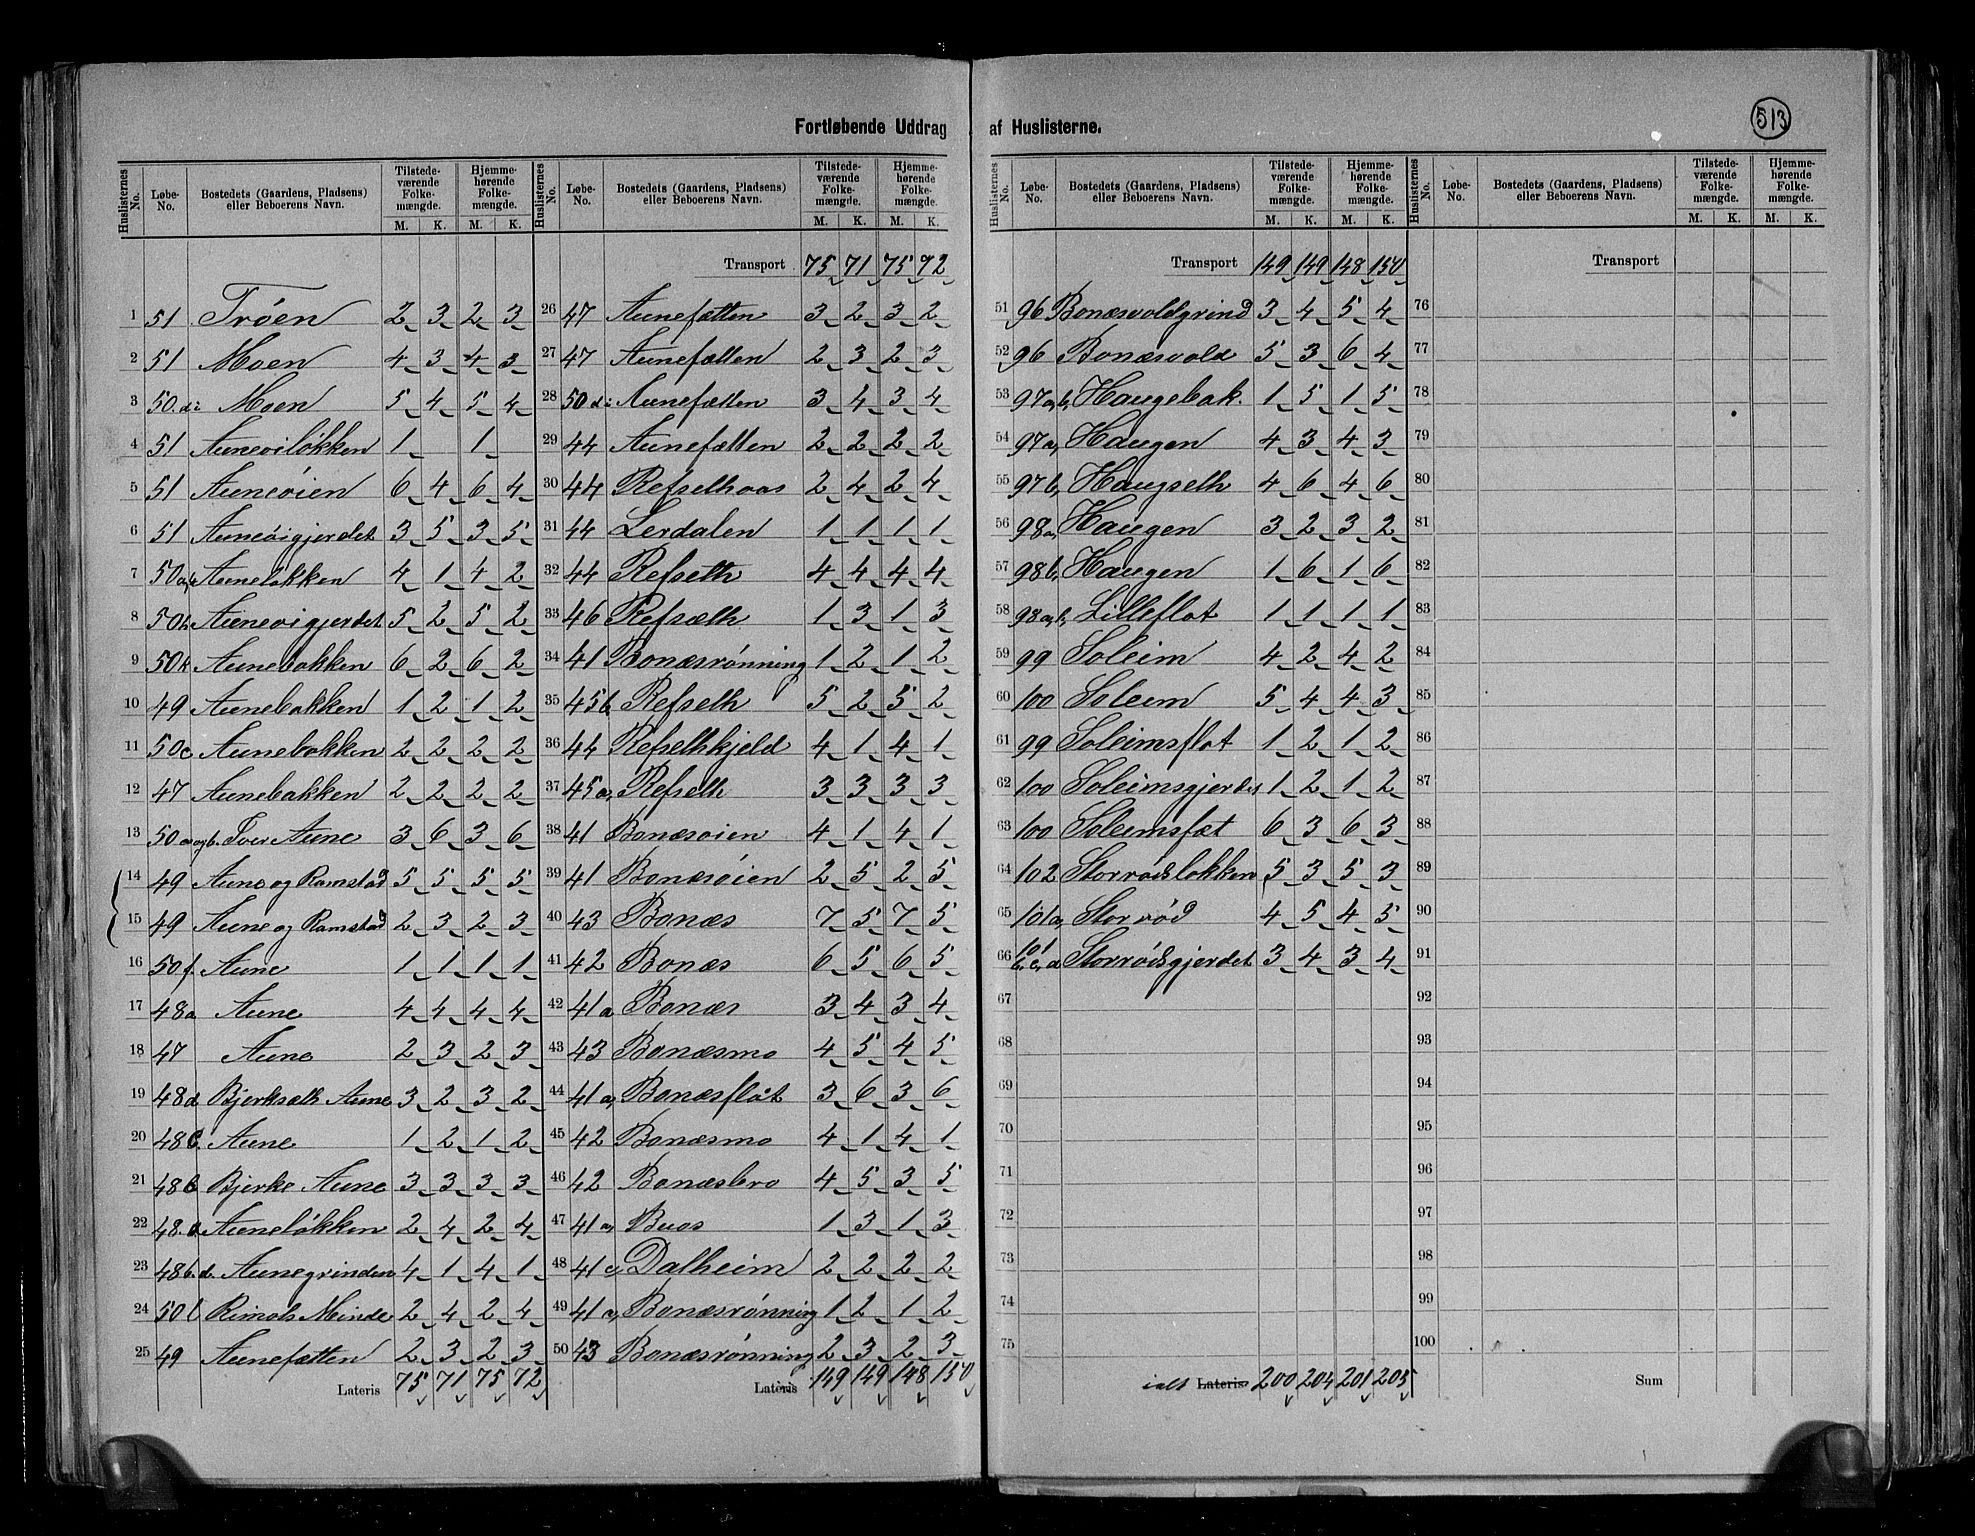 Fortløbende Uddrag af Huslisterne.
513
Huslisternes No. Løbe-No. Bostedets (Gaardens, Pladsens) eller Beboerens Navn. Tilstedeværende Folkemængde. M. K. Hjemmehørende Folkemængde. M. K.
1 51 Trøen 2 3 2 3
2 51 Moen 4 3 4 3
3 50.d: Moen 5 4 5 4
4 51 Auneviløkken 1 1
5 51 Auneøien 6 4 6 4
6 51 Auneøigjerdet 3 5 3 5
7 50 Auneløkken 4 1 4 2
8 50h Auneøigjerdet 5 2 5 2
9 50k Aunebakken 6 2 6 2
10 49 Aunebakken 1 2 1 2
11 50c Aunebakken 2 2 2 2
12 47 Aunebakken 2 2 2 2
13 50 a og b. Tver Aune 3 6 3 6
14 49 Aune og Ramstad 5 5 5 5
15 49 Aune og Ramstad 2 3 2 3
16 50f. Aune 1 1 1 1
17 48a Aune 4 4 4 4
18 47 Aune 2 3 2 3
19 48d Bjerksæth Aune 3 2 3 2
20 48c Aune 1 2 1 2
21 48b Bjerke Aune 3 3 3 3
22 48.d Auneløkken 2 4 2 4
23 48b.d. Aunegrinden 4 1 4 1
24 50l Rimols Minde 2 4 2 4
25 49 Aunefætten 2 3 2 3
Lateris 75 71 75 72
Huslisternes No. Løbe-No. Bostedets (Gaardens, Pladsens) eller Beboerens Navn. Tilstedeværende Folkemængde. M. K. Hjemmehørende Folkemængde. M. K.
Transport 75 71 75 72
26 47 Aunefætten 3 2 3 2
27 47 Aunefætten 2 3 2 3
28 50 d: Aunefætten 3 4 3 4
29 44 Aunefætten 2 2 2 2
30 44 Refselhaas 2 4 2 4
31 44 Lerdalen 1 1 1 1
32 44 Refseth 4 4 4 4
33 46 Refsæth 1 3 1 3
34 41 Bonæsrønning 1 2 1 2
35 45b Refseth 5 2 5 2
36 44 Refsethkjeld 4 1 4 1
37 45a, Refseth 3 3 3 3
38 41 Bonæsøien 4 1 4 1
39 41 Bonæsøien 2 5 2 5
40 43 Bonæs 7 5 7 5
41 42 Bonæs 6 5 6 5
42 41a Bonæs 3 4 3 4
43 43 Bonæsmo 4 5 4 5
44 41a, Bonæsfløt 3 6 3 6
45 42 Bonæsmo 4 1 4 1
46 42 Bonæsbro 4 5 3 5
47 41a, Buas 1 3 1 3
48 41c, Dalheim 2 2 2 2
49 41a, Bonæsrønning 1 2 1 2
50 43 Bonæsrønning 2 3 2 3
Lateris 149 149 148 150
Huslisternes No. Løbe-No. Bostedets (Gaardens, Pladsens) eller Beboerens Navn. Tilstedeværende Folkemængde. M. K. Hjemmehørende Folkemængde. M. K.
Transport 149 149 148 150
51 96 Bonæsvoldgrind 3 4 5 4
52 96 Bonæsvold 5 3 6 4
53 97a,b, Haugebak. 1 5 1 5
54 97a, Haugen 4 3 4 3
55 97b, Haugseth 4 6 4 6
56 98a, Haugen 3 2 3 2
57 98b, Haugen 1 6 1 6
58 98a,b, Lilleflot 1 1 1 1
59 99 Soleim 4 2 4 2
60 100 Soleim 5 4 4 3
61 99 Soleimsflot 1 2 1 2
62 100 Soleimsgjerdet 1 2 1 2
63 100 Soleimsfæt 6 3 6 3
64 102 Storrødsløkken 5 3 5 3
65 101a, Storrød 4 5 4 5
66 101 b, c, d Storrødsgjerdet 3 4 3 4
67
68
69
70
71
72
73
74
75
ialt Lateris 200 204 201 205
Huslisternes No. Løbe-No. Bostedets (Gaardens, Pladsens) eller Beboerens Navn. Tilstedeværende Folkemængde. M. K. Hjemmehørende Folkemængde. M. K.
Transport
76
77
78
79
80
81
82
83
84
85
86
87
88
89
90
91
92
93
94
95
96
97
98
99
100
Sum